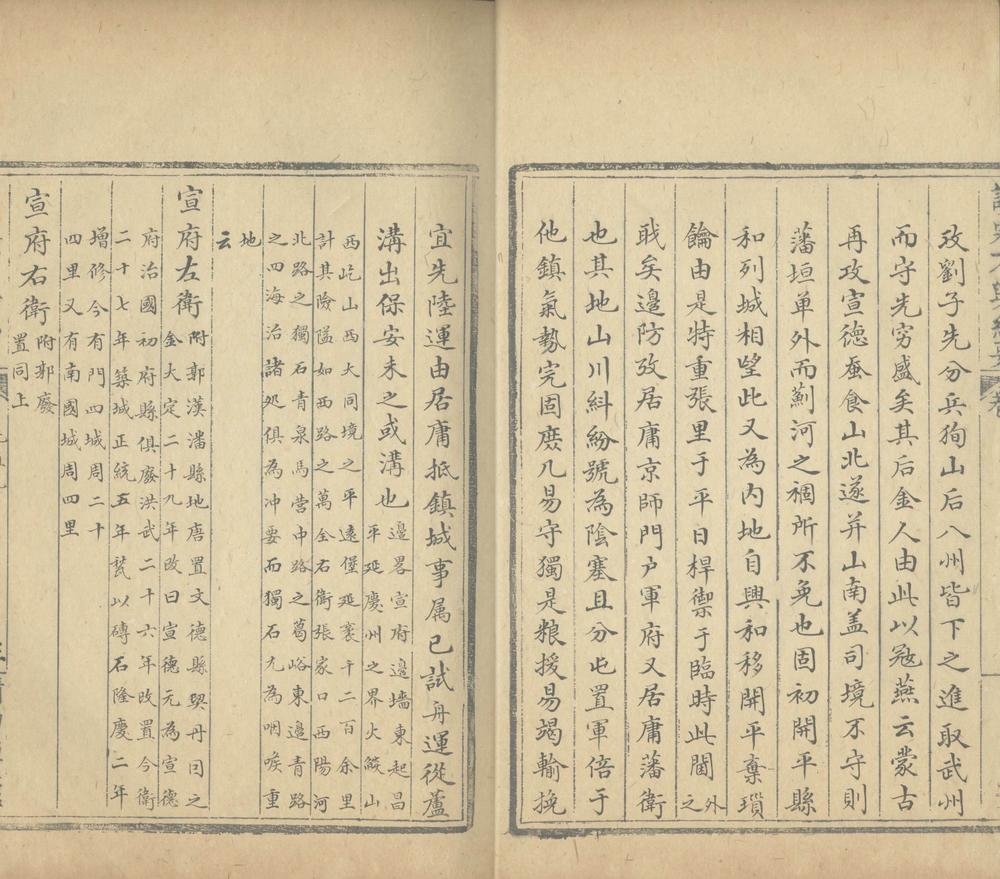 攷劉子先分兵狥山后八州皆下之進取武州
而守先穷盛矣其后金人由此以冦燕云蒙古
再攻宣德蚕食山北遂并山南盖司境不守則
藩垣单外而薊河之裍所不免也固初開平縣
和列城相望此又為内地自興和移開平棄瑣
鑰由是特重張里于平日桿禦于臨時此閫外之
戢矣邉防攷居庸京師門户軍府又居庸藩衛
也其地山川糾紛號為陰塞且分屯置軍倍于
他鎮氣勢完固庶几易守獨是粮援易竭輸挽
宜先陸運由居庸抵鎮城事属已試舟運從蘆
溝出保安未之或溝也邉畧宣府邉墻東起昌
平延慶州之界火燄山
西屹山西大同境之平逺堡延袤千二百余里
計其險隘如西路之萬全右衛張家口西陽河
北路之獨石青泉馬营中路之葛峪東邉青路
之四海治諸処俱為冲要而獨石尤為咽喉重
地
云
宣府左衛附郭漢潘縣地唐置文德縣契丹曰之
金大定二十九年改曰宣德元為宣德
府治國初府縣俱廢洪武二十六年改置今衛
二十七年築城正統五年甃以磚石隆慶二年
增修今有門四城周二十
四里又有南國城周四里
宣府右衛附郭廢
置同上